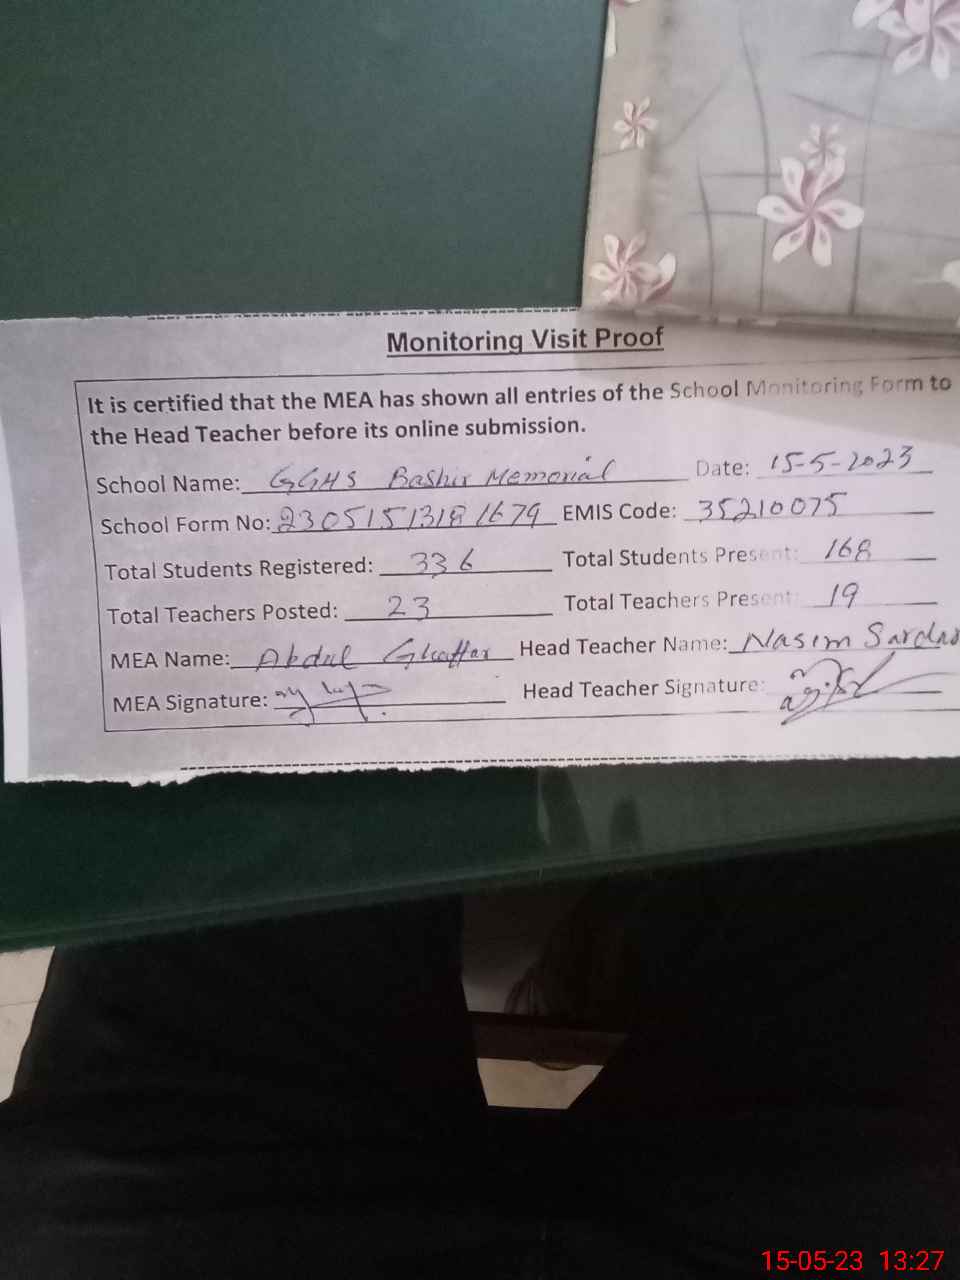 Monitoring Visit Proof
It is certified that the MEA has shown all entries of the School Monitoring Form to
the Head Teacher before its online submission.
School Name: GGHS Bashir Memorial Date: 15-5-2023
School Form No: 2305151318 1679 EMIS Code: 35210075
Total Students Registered: 336 Total Students Present: 168
Total Teachers Posted: 23 Total Teachers Present: 19
MEA Name: Abdul Ghaffar Head Teacher Name: Nasim Sardar
MEA Signature: Head Teacher Signature:
15-05-23 13:27